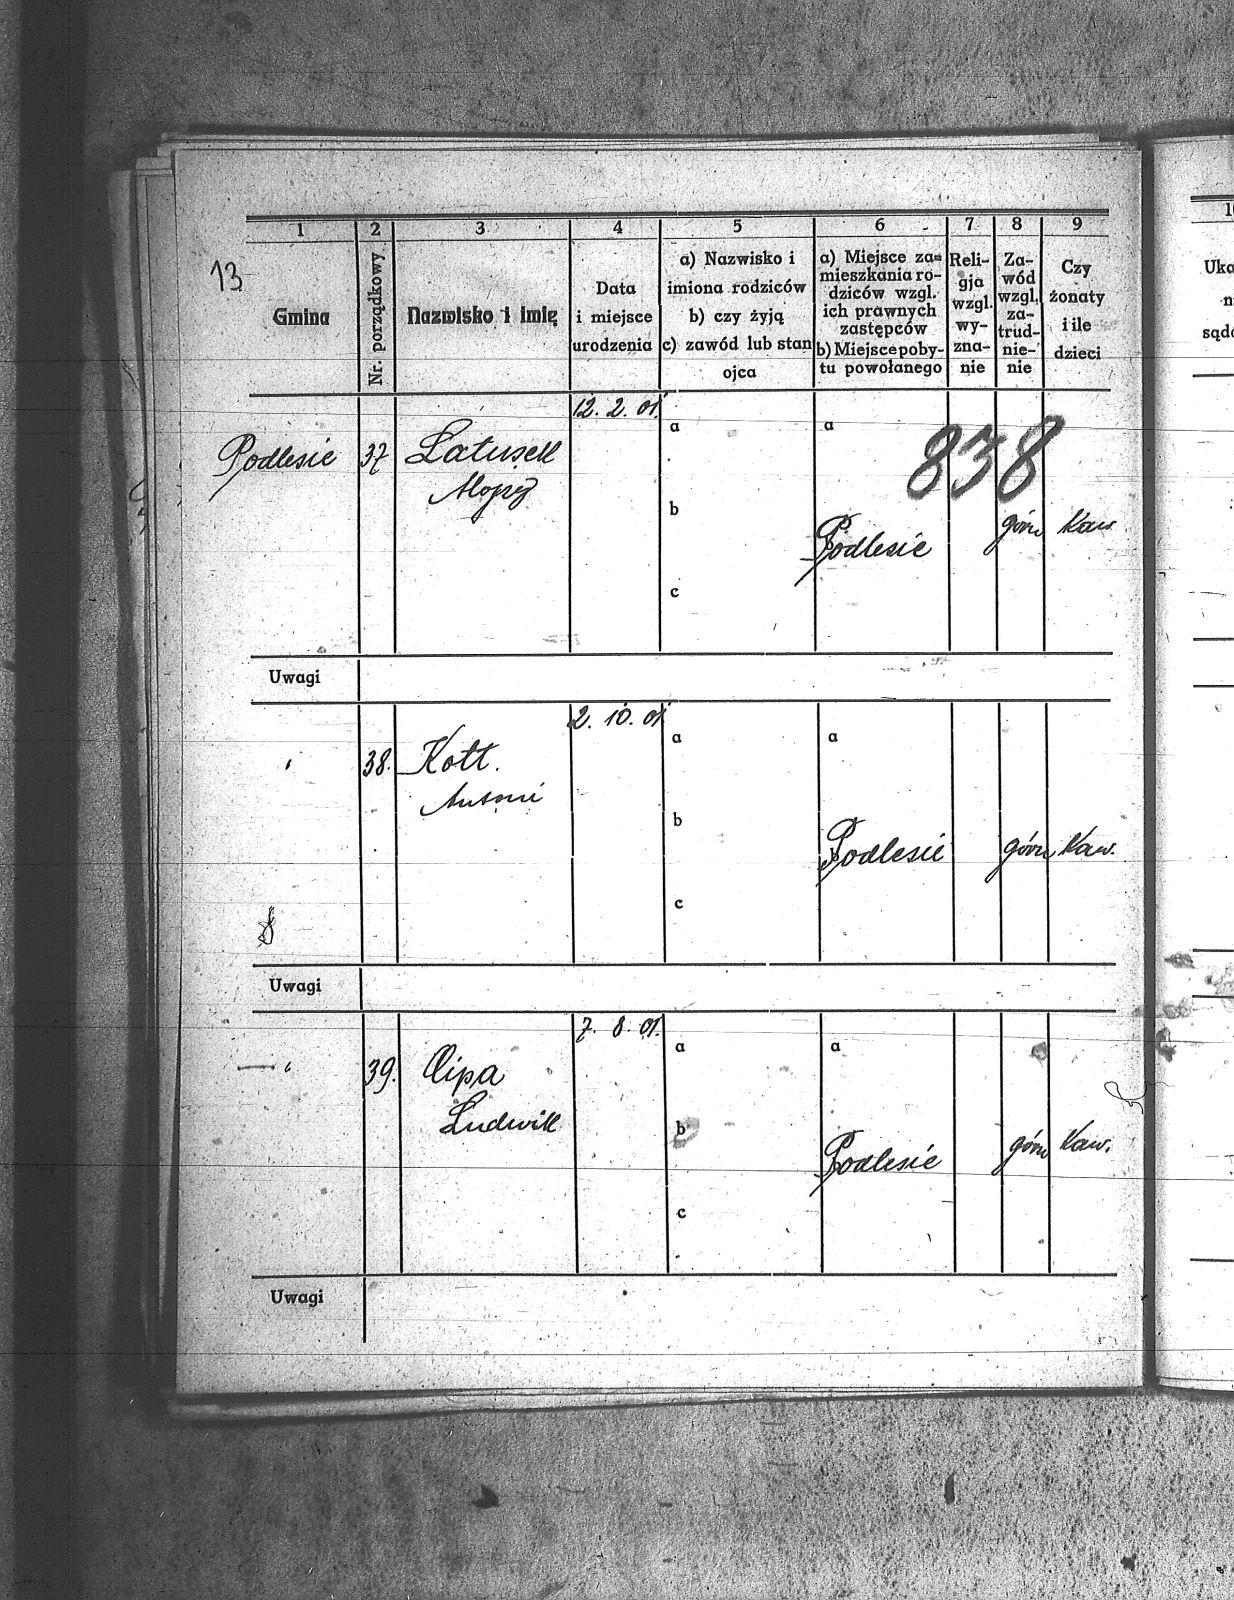 13
1 2 3 4 5 6 7 8 9
Gmina
Nr. porządkowy
Nazwisko i imię
Data
i miejsce
urodzenia
a) Nazwisko i
imiona rodziców
b) czy żyją
c) zawód lub stan
ojca
a) Miejsce za=
mieszkania ro-
dziców wzgl.
ich prawnych
zastępców
b) Miejsce poby-
tu powołanego
Reli-
gja
wzgl.
wy-
zna-
nie
Za-
wód
wzgl.
za-
trud-
nie-
nie
Czy
żonaty
i ile
dzieci
12. 2. 01.
a a
838
Podlesie 37 Latusek
Alojzy
b
Podlesie górn Kaw
c
Uwagi
2. 10. 01
a a
" 38. Kott.
Antoni
b
Podlesie górn Kaw.
c
Uwagi
7. 8. 01.
a a
— " 39. Cipa
Ludwik
b
Podlesie górn Kaw.
c
Uwagi
10
Uka
n
sąd